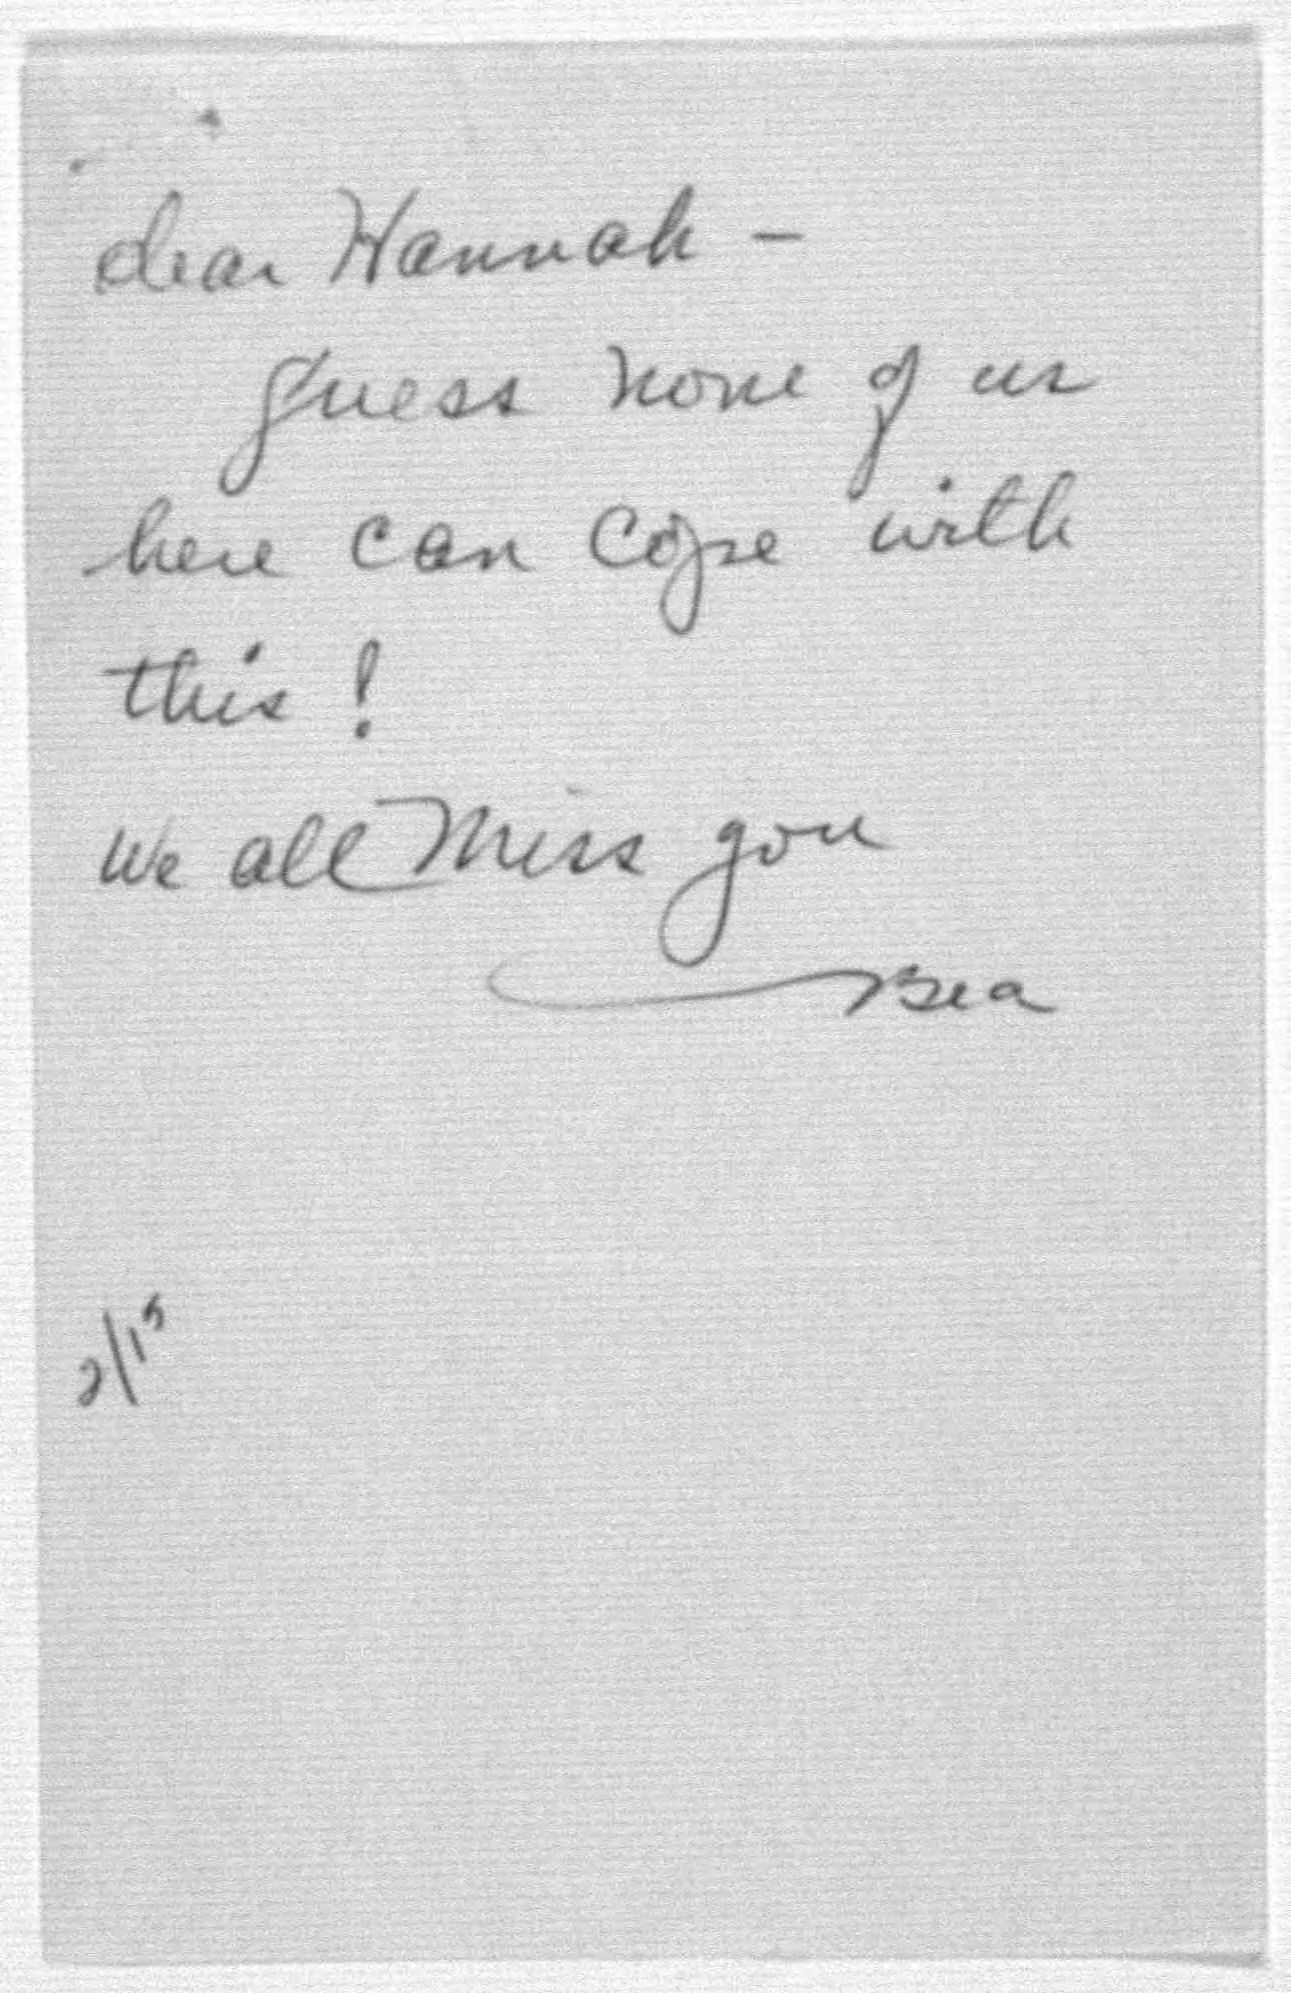 dear Hannah –
guess none of us
here can cope with
this!
We all miss you
Bea
2/15